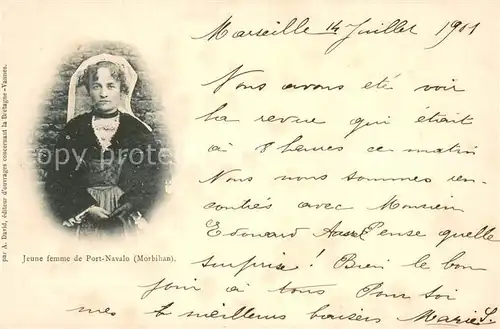 Marseille 14 Juillet 1901
Nous avons eté voir
la revue qui était
à 8 heures ce matin
Nous nous sommes ren-
contrés avec Monsieur
Edouard Pense quelle
surprise ! Bien le bon
jour à tous Pour toi
mes meilleurs baisers Marie
Jeune femme de Port-Navalo (Morbihan).
par A. David, éditeur d'ouvrages concernant la Bretagne-Vannes.
povcard.com